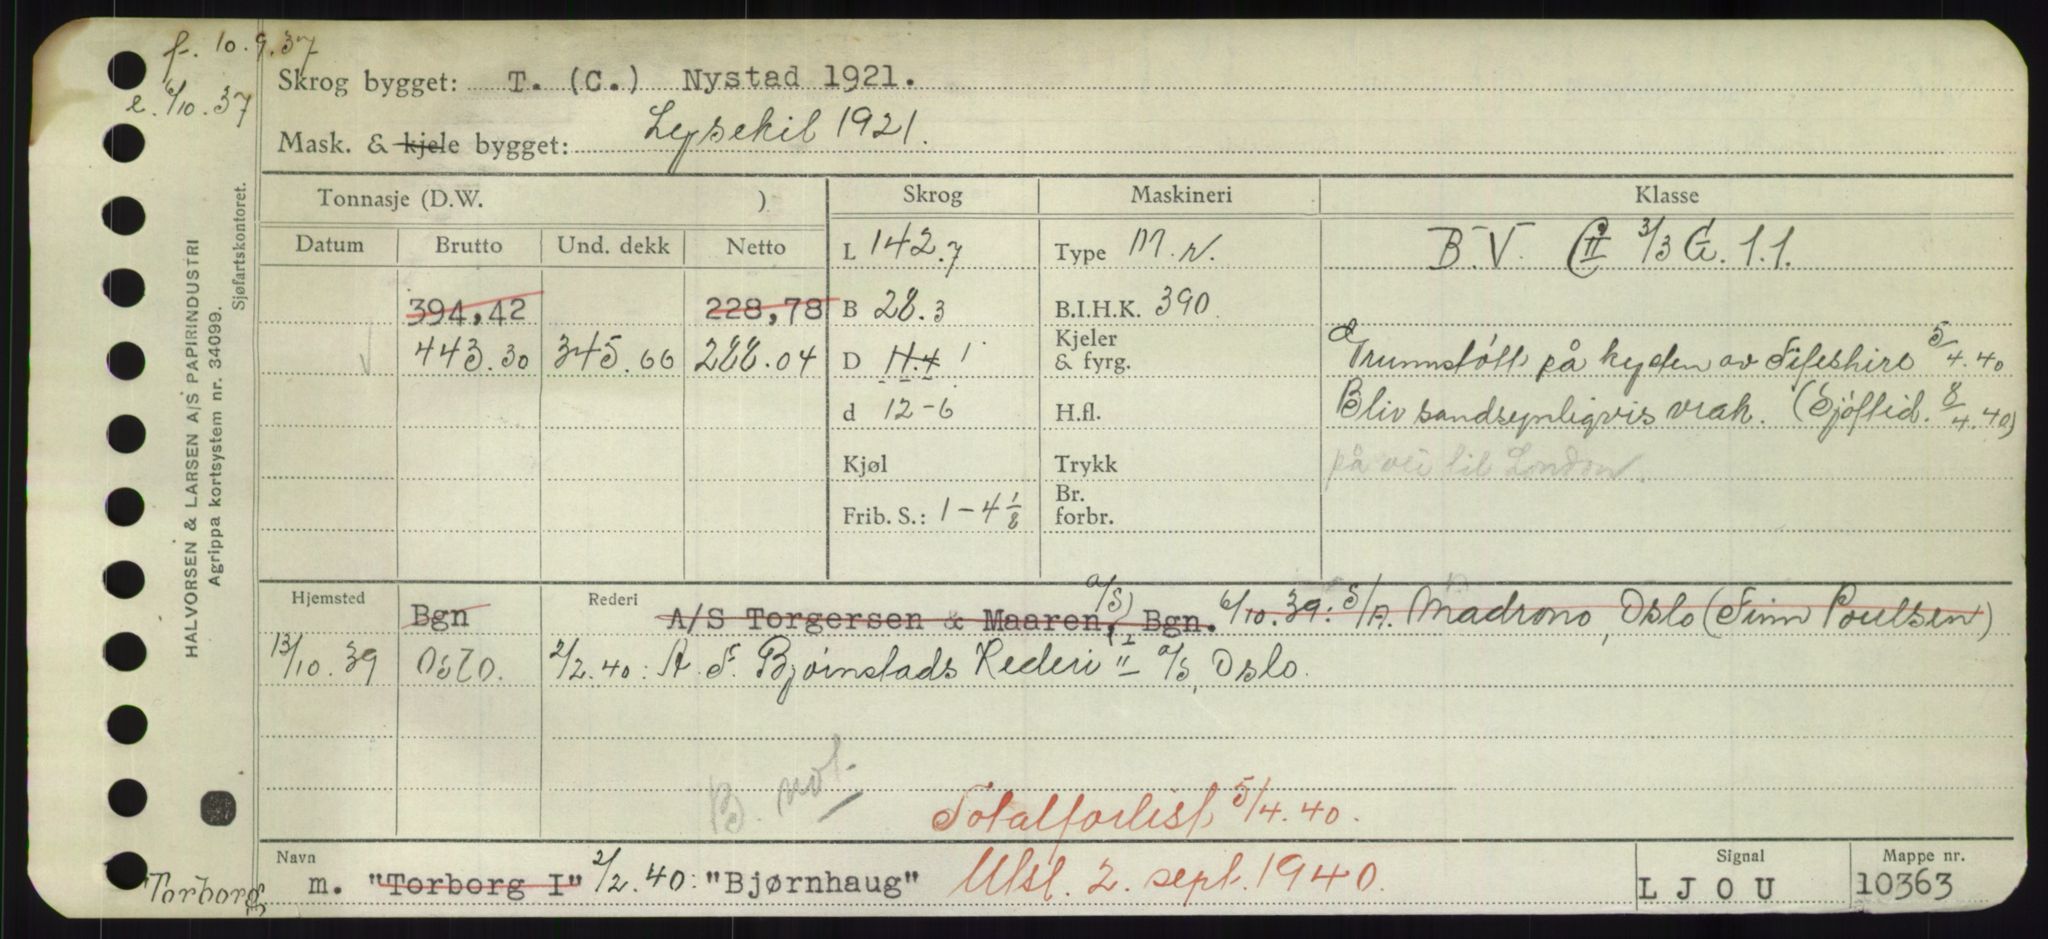 f. 10.9.37
e. 6/10.37
Skrog bygget: T. (C.) Nystad 1921.
Mask. & kjele bygget: Lysekil 1921.
HALVORSEN & LARSEN A/S PAPIRINDUSTRI
Agrippa kortsystem nr. 34099.
Sjøfartskontoret.
Tonnasje (D.W. )
Skrog
Maskineri
Klasse
Datum Brutto Und. dekk Netto
L 142.7
Type M.
B.V. 3/3 G. 1.1.
394,42 228,78
B 28.3
B.I.H.K. 390.
443.30 345.66 288.04
D 11.4
Kjeler
& fyrg.
Grunnstött på kysten av Fifeshire 5/4.40
d 12-6
H.fl.
Bliv sandsynligvis vrak. (Sjöftid. 8/4.40)
Kjøl
Trykk
på vei til London.
Frib. S.: 1-4 1/8
Br.
forbr.
Hjemsted Bgn
Rederi A/S Torgersen & Maaren, Bgn. 6/10.39: S/A. Madrono, Oslo (Finn Poulsen)
13/10.39 Oslo. 2/2.40: A. F. Bjørnstads Rederi II A/S, Oslo.
B. not.
Totalforlist 5/4.40.
Navn
m. "Torborg I" 2/2.40: "Bjørnhaug" Utsl. 2. sept. 1940.
Signal
LJOU
Mappe nr.
10363
Torborg